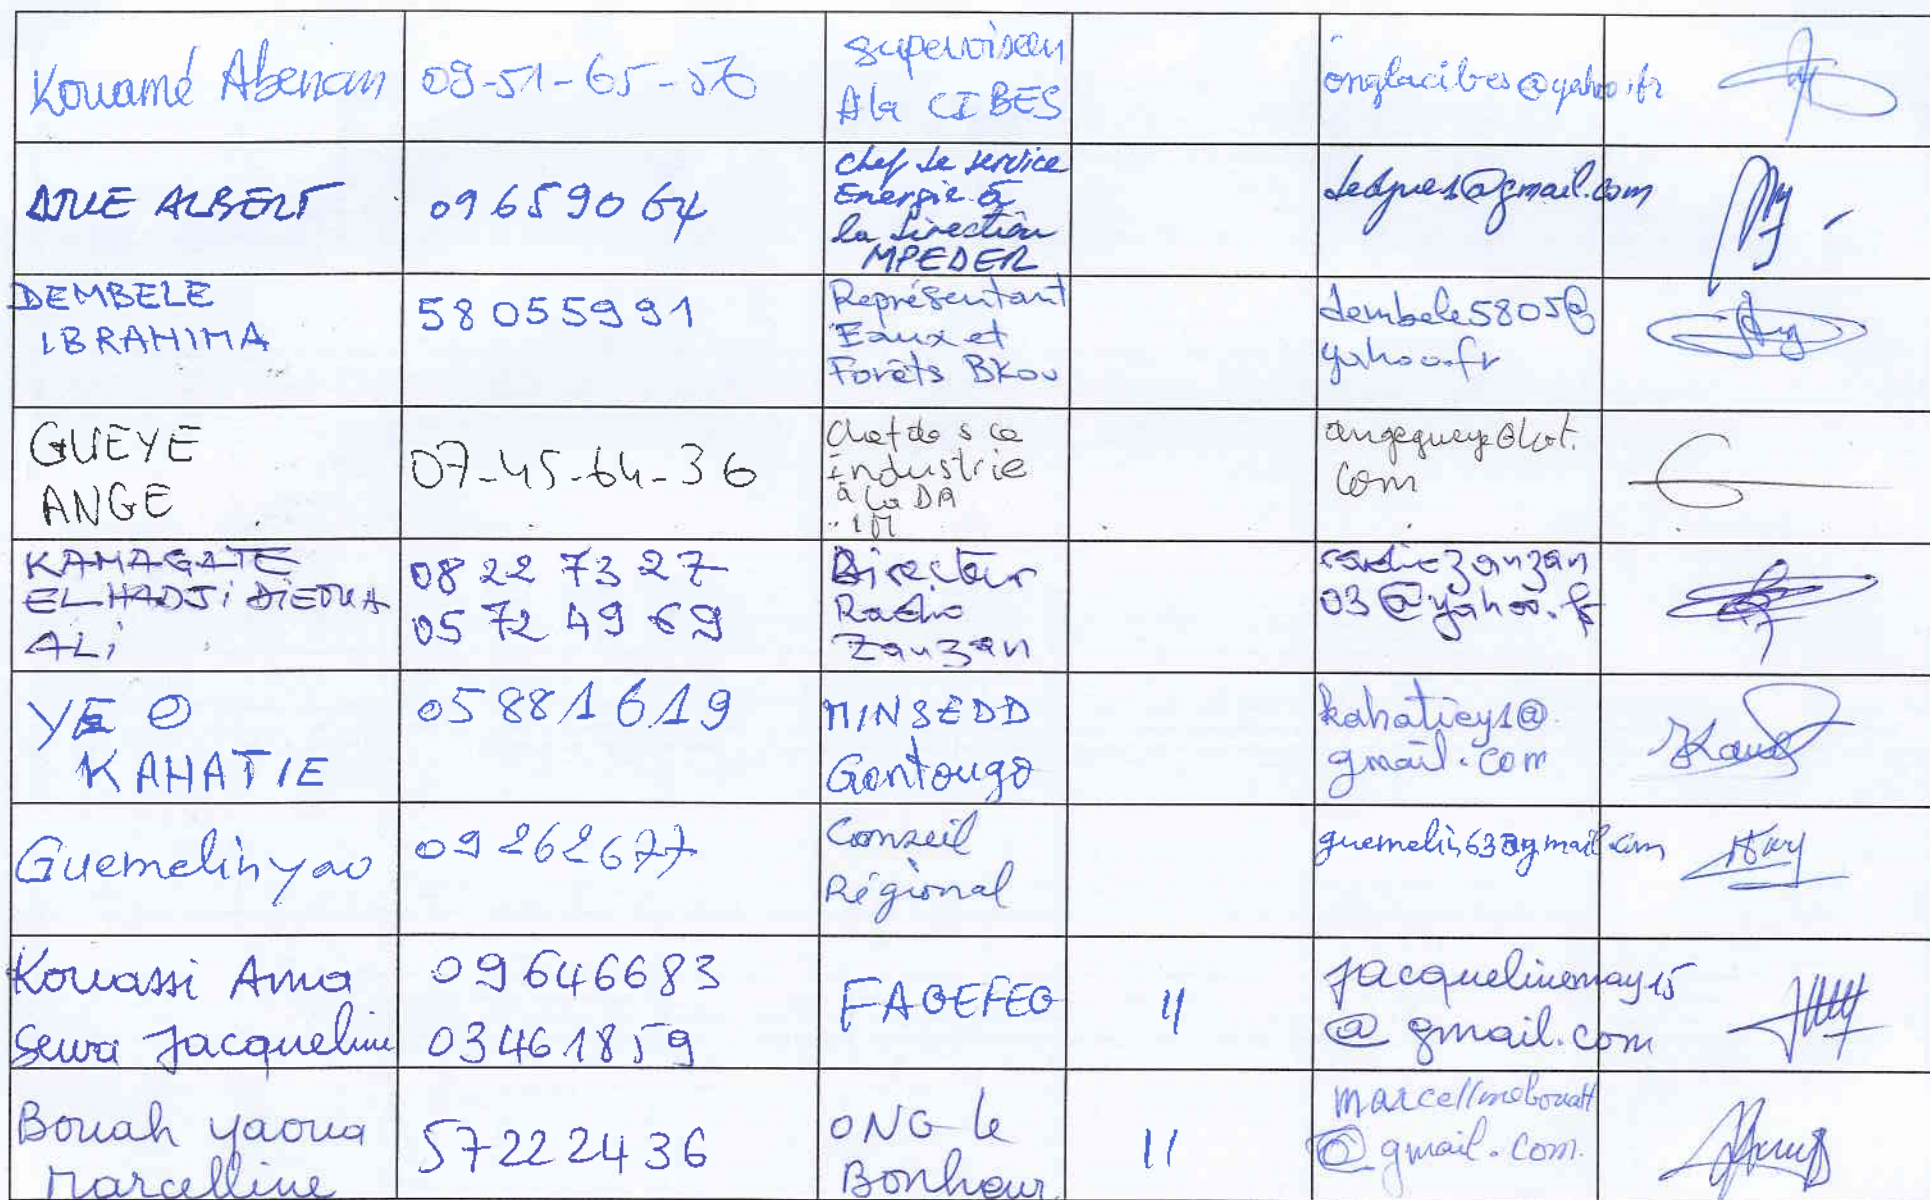 Kouamé Abenan
09-51-65-56
superviseur
A la CIBES
onglacibes@yahoo.fr
ALBERT
09659064
chef de service
Energie à
la direction
MPEDER
DEMBELE
IBRAHIMA
58055991
Représentant
Eaux et
Forêts BKou
dembele5805@
yahoo.fr
GUEYE
ANGE
07-45-64-36
Chef de sce
Industrie
à la DA
angegueye@hot.
com
KAMAGATE
ELHADJI DIEDUA
ALi
08 22 73 27
05 72 49 69
Directeur
Radio
Zanzan
radiozanzan
03@yahoo.fr
YEO
KAHATIE
05881619
MINSEDD
Gontougo
kahatiey1@
gmail.com
Guemelin yao
09262677
Conseil
Régional
guemelin63@gmail.com
Kouassi Ama
Sewa Jacqueline
09646683
03461859
FAGEFEG
11
jacquelinemay15
@gmail.com
Bouah yaoua
Marcelline
57222436
ONG le
Bonheur
11
marcellinebouatt
@gmail.com.